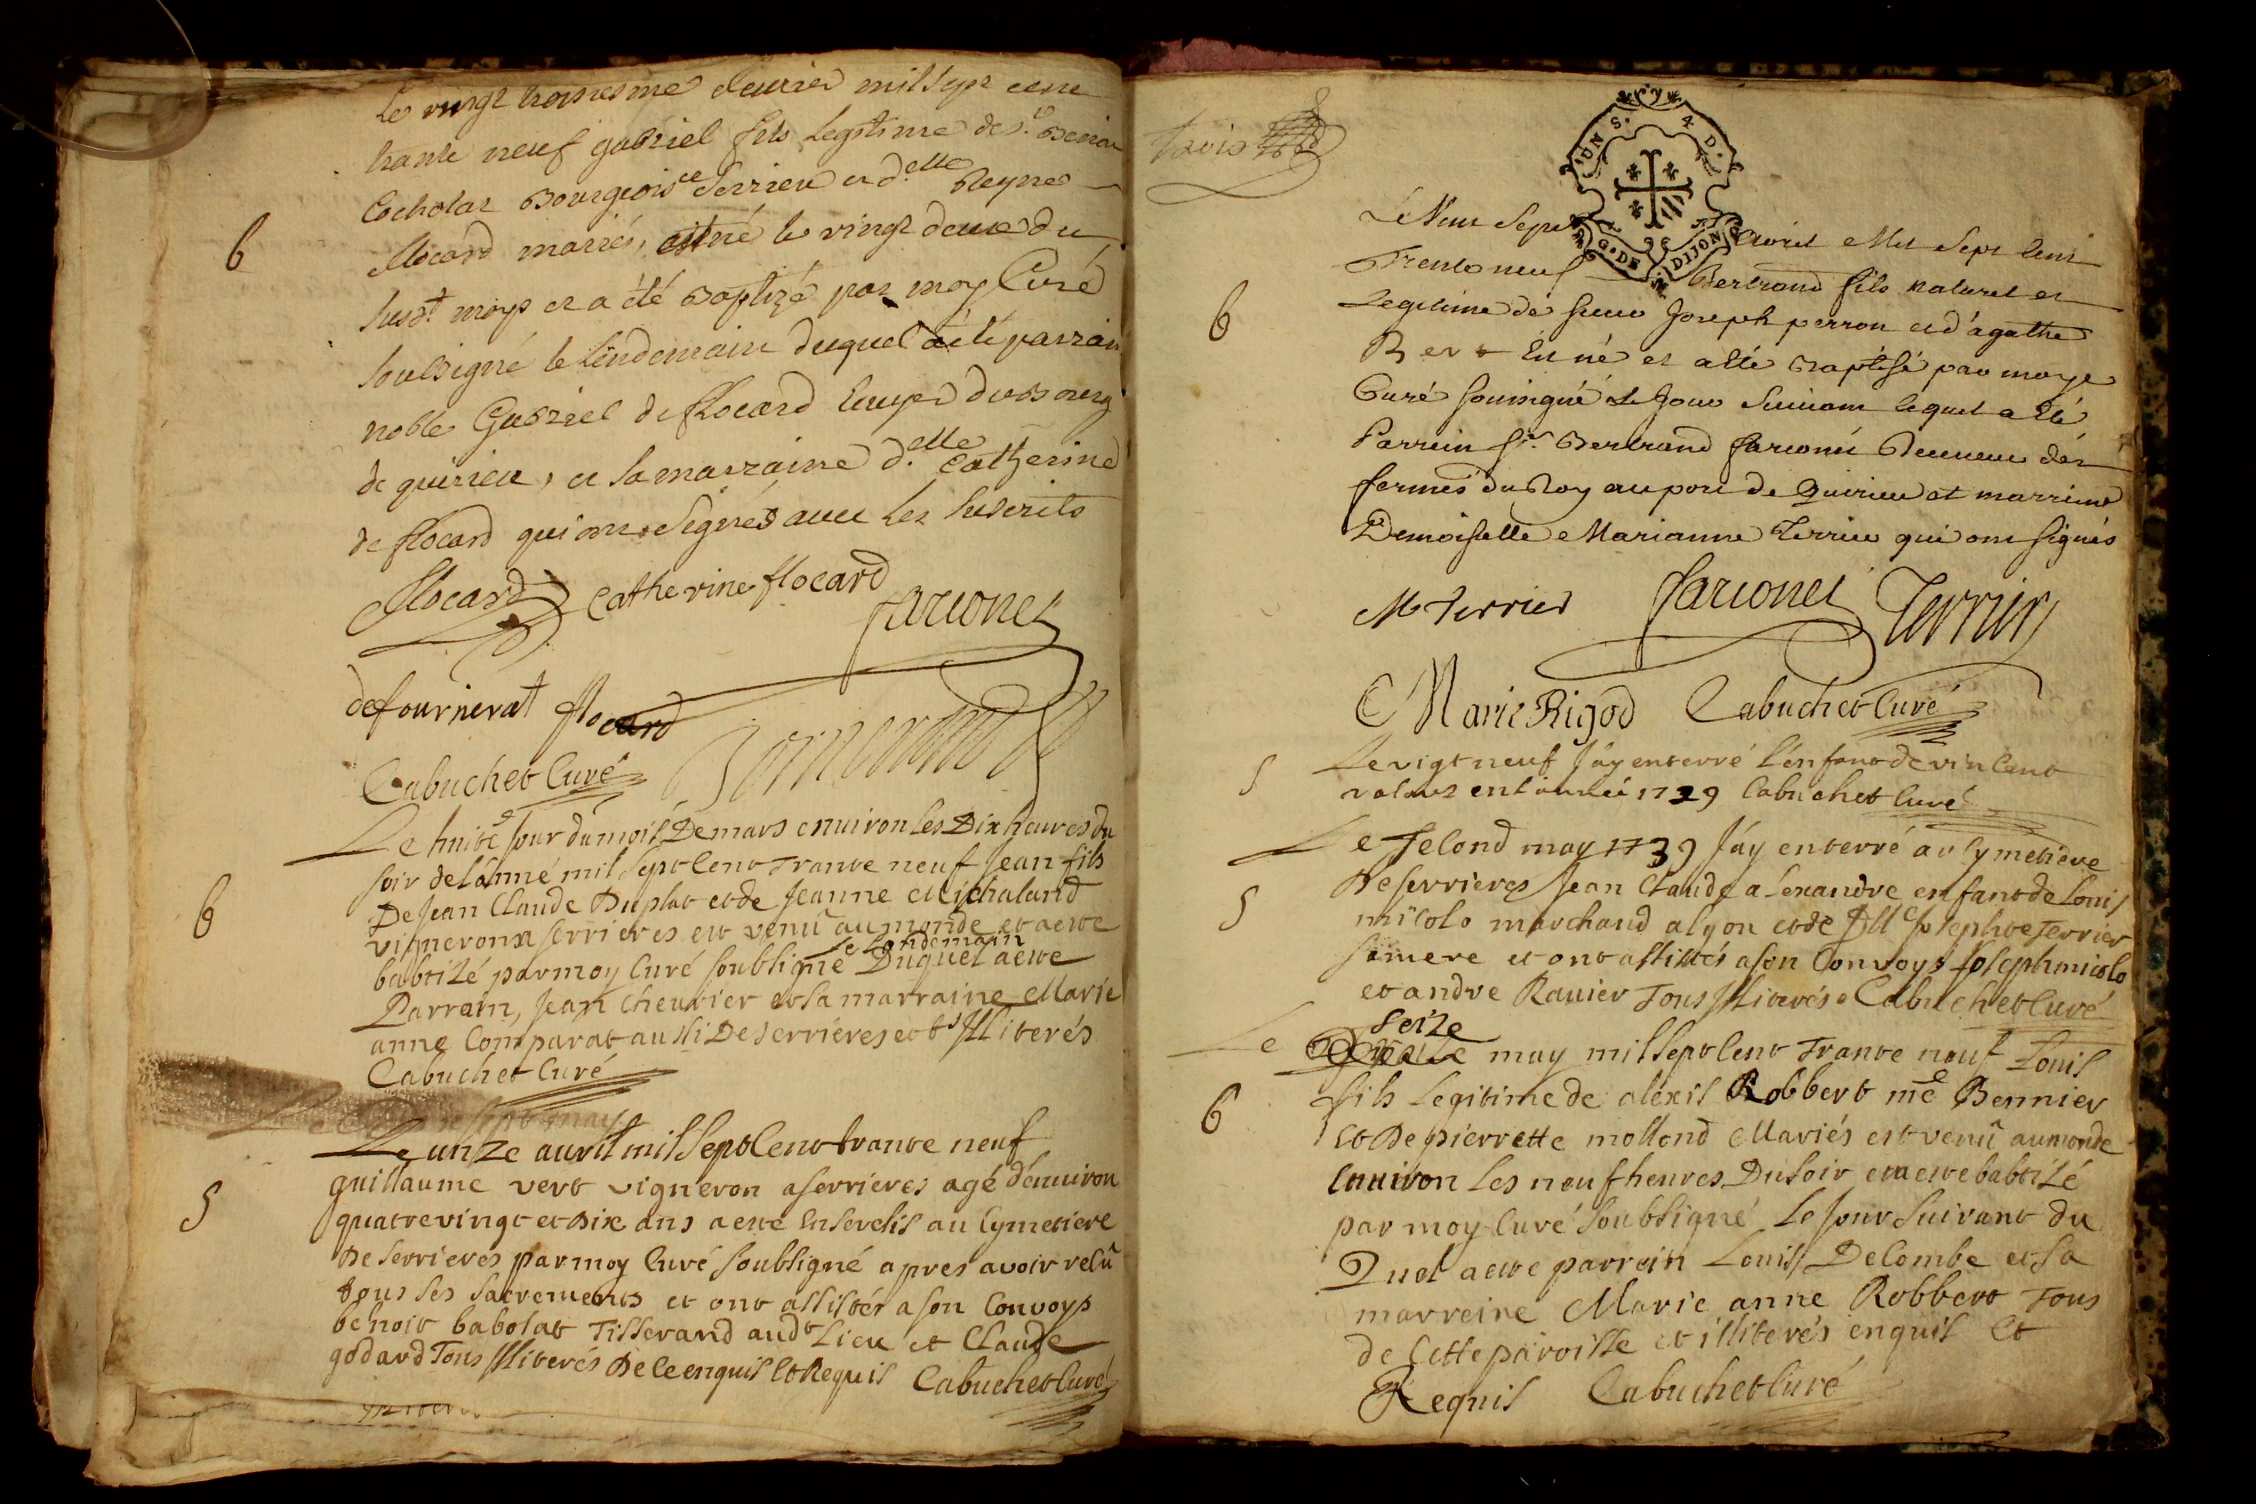 Le vingt troisiesme feurier mil sept cent
trante neuf gabriel fils legitime de s.r Benoit
Cocholat Bourgeois de Serriere et d.elle Reyne
flocard mariés, est né le vingt deux du
susd.t moys et a été baptizé par moy Curé
soussigné le lendemain duquel a été parrain
noble Gabriel de flocard du bourg
de quirieu, et la marraine d.elle Catherine
de flocard qui ont signés avec les susdits
flocard Catherine flocard
farconet
defournerat flocard
Cabuchet Curé
6
Le huite jour du mois De mars enuiron les Dix heures du
soir de lanné mil sept Cent Trante neuf Jean fils
De Jean Claude Duplat et de Jeanne Michaland
vigneron a serrieres est venu au monde et a este
le Landemain
babtizé par moy Curé soubsigné Duquel a este
Parrain, Jean Cheurier et sa marraine Marie
anne Comparat aussi De serriéres et ts Illiterés
Cabuchet Curé
6
sept may
Le unze auril mil sept Cent trante neuf
guillaume vert vigneron a serrieres agé d'enuiron
quatre vingt et Dix ans a esté Enseuelis au Cymetiere
De serrieres par moy Curé soubsigné apres avoir reçû
tous ses sacrements et ont assistés a son Convoys
benoit babolat Tisserand aud.t Lieu et Claude
godard Tous Illiterés De ce enquis Et Requis Cabuchet Curé
S
tavis
UN S. 4 D.
G. DE DIJON
Le Vint Sept Avril Mil Sept Cent
Trente neuf Bertrand fils naturel et
Legitime de sieur Joseph perron et d'agathe
Rey Est né et a été Baptisé par moy
Curé soussigné Le Jour Suivant lequel a Eté
Parrein s.r Bertrand farconet Receveur des
fermes du Roy au port de Quirieu et marrine
Demoiselle Marianne Terrier qui ont signés
6
M Terrier farconet Terrier
Marie Rigod Cabuchet Curé
S
Le vigt neuf J'ay enterré l'enfant de vincent
valous en l'année 1739 Cabuchet Curé
Le second may 1739 J'ay enterré au Cymetiere
De serrieres Jean Claude alexandre enfant de Louis
micolo marchand a lyon et de Dlle Josephte Terrier
sa mere et ont assistés a son Convoys Joseph micolo
et andre Rauier Tous Illiterés Cabuchet Curé
S
seize
Le may mil sept Cent Trante neuf Louis
fils Legitime de alexis Robbert me Bennier
et De pierrette mollond Mariés est venû au monde
Enuiron Les neuf heures Du soir et a este babtizé
par moy Curé soubsigné Le Jour suivant du
Quel a este parrein Louis Delombe et sa
marreine Marie anne Robbert Tous
de Cette paroisse et illiterés enquis Et
Requis Cabuchet Curé
6